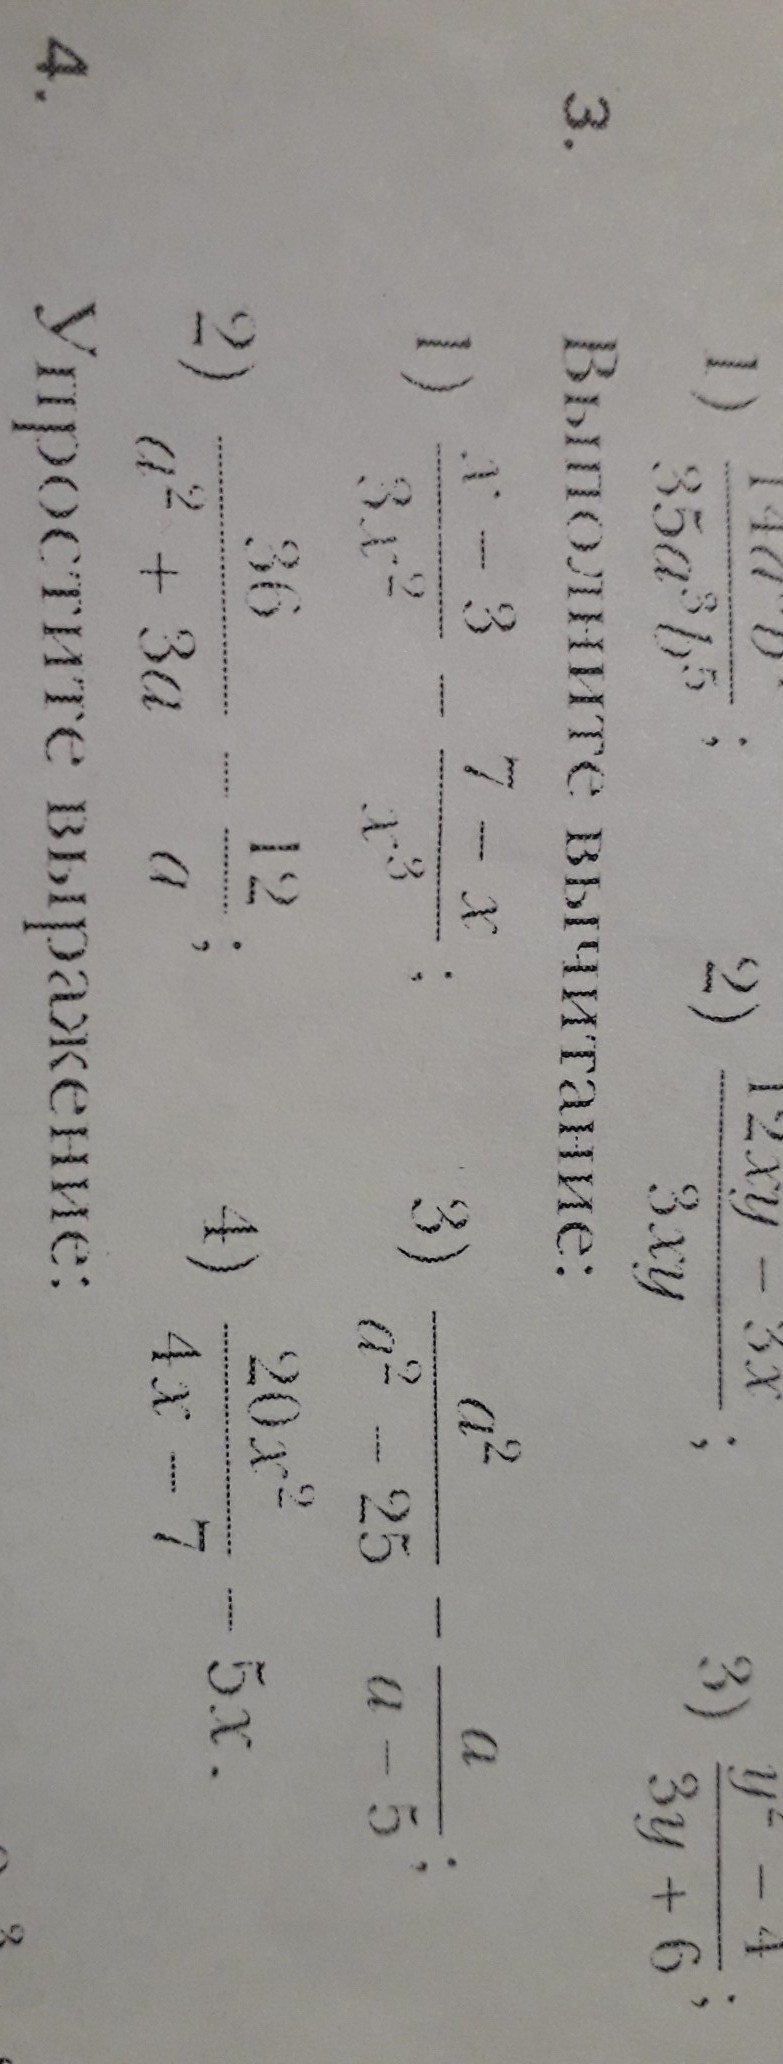 1) 35a³b⁵; 2) (12xy − 3x)/(3xy); 3) (y² − 4)/(3y + 6);
3. Выполните вычитание:
1) (x − 3)/(3x²) − (7 − x)/(x³); 3) a²/(a² − 25) − a/(a − 5);
2) 36/(a² + 3a) − 12/a; 4) 20x²/(4x − 7) − 5x.
4. Упростите выражение: